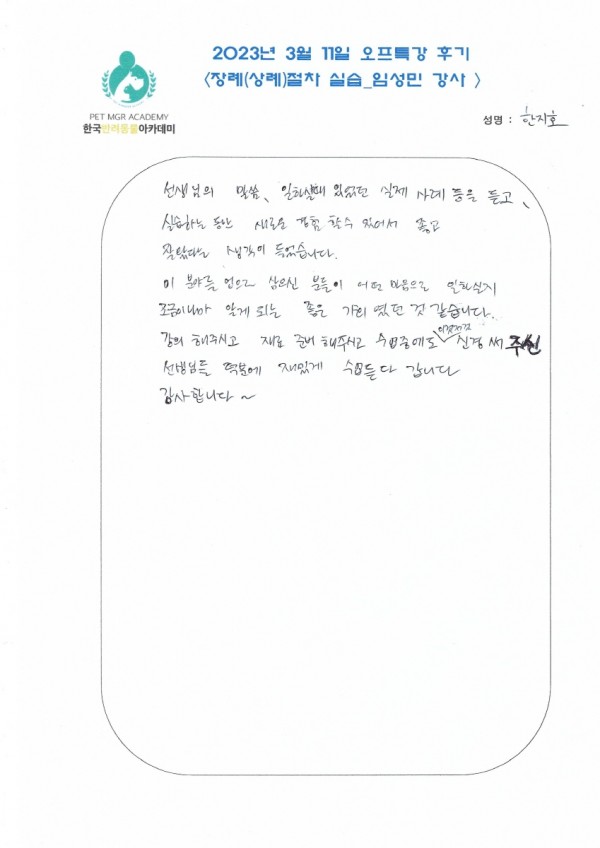 2023년 3월 11일 오프특강 후기
<장례(상례)절차 실습_임성민 강사 >
PET MGR ACADEMY
한국반려동물아카데미
성명 : 한지호
선생님의 말씀, 일하실때 있었던 실제 사례 등을 듣고,
실습하는 동안 새로운 경험 할수 있어서 좋고
잘왔다는 생각이 들었습니다.
이 분야를 업으로 삼으신 분들이 어떤 마음으로 일하실지
조금이나마 알게 되는 좋은 기회 였던 것 같습니다.
강의 해주시고 재료 준비 해주시고 수업중에도 이것저것 신경써 주신
선생님들 덕분에 재밌게 수업듣다 갑니다
감사합니다 ~